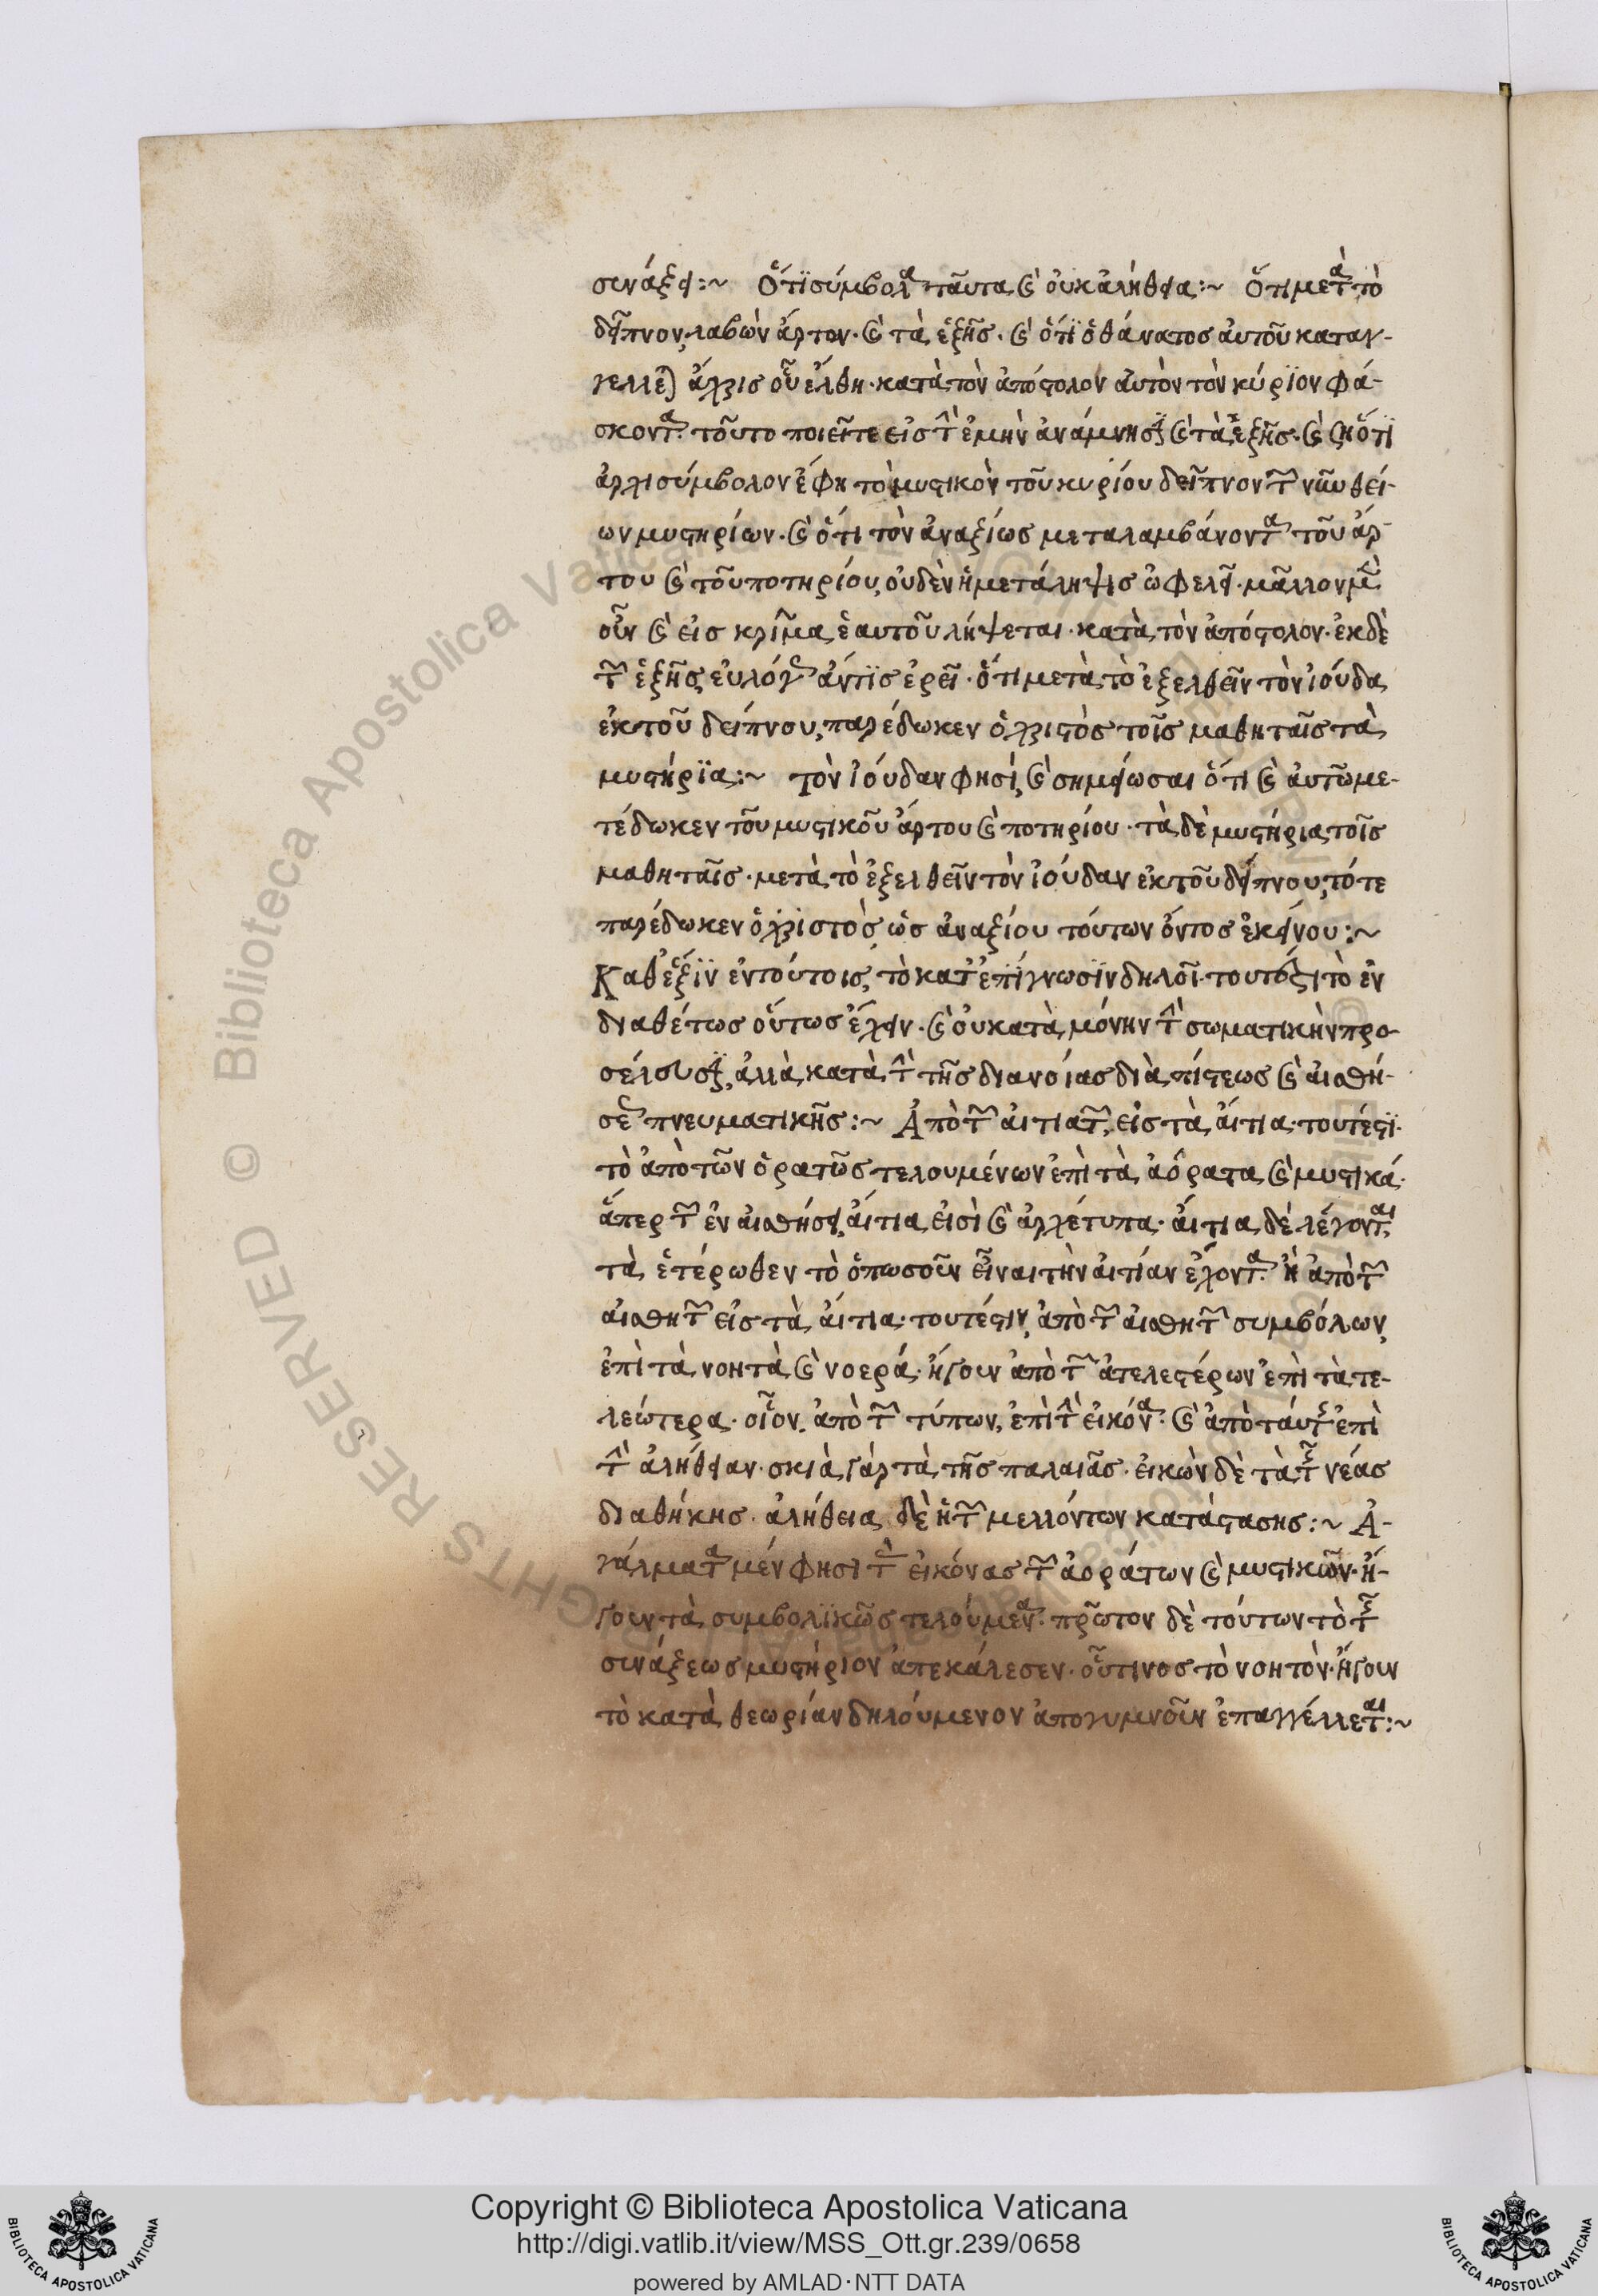 συνάξει:~ Ὅτι σύμβολα ταῦτα καὶ οὐκ ἀλήθεια:~ Ὅτι μετὰ τὸ
δεῖπνον, λαβὼν ἄρτον· καὶ τὰ ἑξῆς· καὶ ὅτι ὁ θάνατος αὐτοῦ καταγ-
γέλλεται ἄχρις οὗ ἔλθη· κατὰ τὸν ἀπόστολον αὐτὸν τὸν κύριον φά-
σκοντα· τοῦτο ποιεῖτε εἰς τὴν ἐμὴν ἀνάμνησιν καὶ τὰ ἑξῆς· καὶ ὅτι
ἀρχισύμβολον ἔφη τὸ μυστικὸν τοῦ κυρίου δεῖπνον τῶν νῦν θεί-
ων μυστηρίων· καὶ ὅτι τὸν ἀναξίως μεταλαμβάνοντα τοῦ ἄρ-
του καὶ τοῦ ποτηρίου, οὐδὲν ἡ μετάληψις ὠφελεῖ· μᾶλλον μὲν
οὖν καὶ εἰς κρῖμα ἑαυτοῦ λήψεται· κατὰ τὸν ἀπόστολον· ἐκ δὲ
τῶν ἑξῆς εὐλόγως ἄν τις ἐρεῖ· ὅτι μετὰ τὸ ἐξελθεῖν τὸν ἰούδα
ἐκ τοῦ δείπνου, παρέδωκεν ὁ χριστὸς τοῖς μαθηταῖς τὰ
μυστήρια:~ τὸν ἰούδαν φησί, καὶ σημείωσαι ὅτι καὶ αὐτῶ με-
τέδωκεν τοῦ μυστικοῦ ἄρτου καὶ ποτηρίου· τὰ δὲ μυστήρια τοῖς
μαθηταῖς· μετὰ τὸ ἐξελθεῖν τὸν ἰούδαν ἐκ τοῦ δείπνου, τότε
παρέδωκεν ὁ χριστὸς ὡς ἀναξίου τούτων ὄντος ἐκείνου:~
Καθ' ἕξιν ἐν τούτοις, τὸ κατ' ἐπίγνωσιν δηλοῖ· τουτέστι τὸ ἐν
διαθέτως οὕτως ἔχειν· καὶ οὐ κατὰ μόνην τὴν σωματικὴν προ-
σέλευσιν, ἀλλὰ κατὰ τὴν τῆς διανοίας διὰ πίστεως καὶ αἰσθή-
σεως πνευματικῆς:~ Ἀπὸ τῶν αἰτιατῶν, εἰς τὰ αἴτια· τουτέστι·
τὸ ἀπὸ τῶν ὁρατῶς τελουμένων ἐπὶ τὰ ἀόρατα καὶ μυστικά·
ἅπερ τῶν ἐν αἰσθήσει αἴτια εἰσὶ καὶ ἀρχέτυπα· αἴτια δὲ λέγονται
τὰ ἑτέρωθεν τὸ ὁπωσοῦν εἶναι τὴν αἰτίαν ἔχοντα· ἢ ἀπὸ τῶν
αἰσθητῶν εἰς τὰ αἴτια· τουτέστιν, ἀπὸ τῶν αἰσθητῶν συμβόλων,
ἐπὶ τὰ νοητὰ καὶ νοερά· ἤγουν ἀπὸ τῶν ἀτελεστέρων ἐπὶ τὰ τε-
λεώτερα· οἷον, ἀπὸ τῶν τύπων, ἐπὶ τὴν εἰκόνα· καὶ ἀπὸ ταύτης ἐπὶ
τὴν ἀλήθειαν· σκιὰ γὰρ τὰ τῆς παλαιᾶς· εἰκὼν δὲ τὰ τῆς νέας
διαθήκης· ἀλήθεια δὲ ἡ τῶν μελλόντων κατάστασης:~ Ἀ-
γάλματα μέν φησι τὰς εἰκόνας τῶν ἀοράτων καὶ μυστικῶν· ἤ-
γουν τὰ συμβολικῶς τελούμενα· πρῶτον δὲ τούτων τὸ τῆς
συνάξεως μυστήριον ἀπεκάλεσεν· οὗτινος τὸ νοητὸν· ἤγουν
τὸ κατὰ θεωρίαν δηλούμενον ἀπογυμνοῦν ἐπαγγέλλεται:~
Copyright © Biblioteca Apostolica Vaticana
http://digi.vatlib.it/view/MSS_Ott.gr.239/0658
powered by AMLAD·NTT DATA